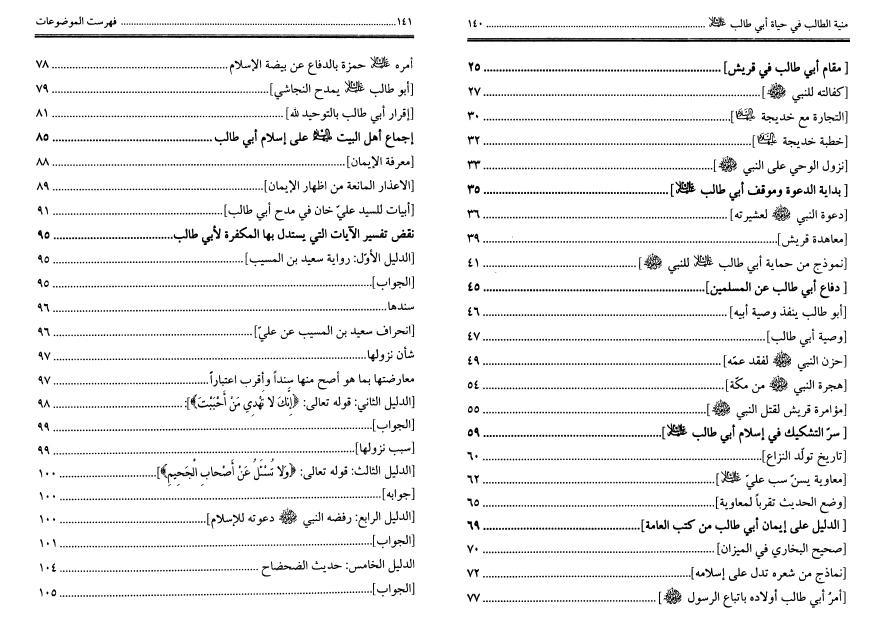 منية الطالب في حياة أبي طالب ﵇ ........ ١٤٠
[ مقام أبي طالب في قريش] ........ ٢٥
[كفالته للنبي ﷺ] ........ ٢٧
[التجارة مع خديجة ﵍] ........ ٣٠
[خطبة خديجة ﵍] ........ ٣٢
[نزول الوحي على النبي ﷺ] ........ ٣٣
[ بداية الدعوة وموقف أبي طالب ﵇] ........ ٣٥
[دعوة النبي ﷺ لعشيرته] ........ ٣٦
[معاهدة قريش] ........ ٣٩
[نموذج من حماية أبي طالب ﵇ للنبي ﷺ] ........ ٤١
[ دفاع أبي طالب عن المسلمين] ........ ٤٥
[أبو طالب ينفذ وصية أبيه] ........ ٤٦
[وصية أبي طالب] ........ ٤٧
[حزن النبي ﷺ لفقد عمّه] ........ ٤٩
[هجرة النبي ﷺ من مكّة] ........ ٥٤
[مؤامرة قريش لقتل النبي ﷺ] ........ ٥٥
[ سرّ التشكيك في إسلام أبي طالب ﵇] ........ ٥٩
[تاريخ تولّد النزاع] ........ ٦٠
[معاوية يسنّ سب عليّ ﵇] ........ ٦٢
[وضع الحديث تقرباً لمعاوية] ........ ٦٥
[ الدليل على إيمان أبي طالب من كتب العامة] ........ ٦٩
[صحيح البخاري في الميزان] ........ ٧٠
[نماذج من شعره تدل على إسلامه] ........ ٧٢
[أمرُ أبي طالب أولاده باتباع الرسول ﷺ] ........ ٧٧
فهرست الموضوعات ........ ١٤١
أمره ﵇ حمزة بالدفاع عن بيضة الإسلام ........ ٧٨
[أبو طالب ﵇ يمدح النجاشي] ........ ٧٩
[إقرار أبي طالب بالتوحيد لله] ........ ٨١
إجماع أهل البيت ﵈ على إسلام أبي طالب ........ ٨٥
[معرفة الإيمان] ........ ٨٨
[الاعذار المانعة من اظهار الإيمان] ........ ٨٩
[أبيات للسيد عليّ خان في مدح أبي طالب] ........ ٩١
نقض تفسير الآيات التي يستدل بها المكفرة لأبي طالب ........ ٩٥
[الدليل الأوّل: رواية سعيد بن المسيب] ........ ٩٥
[الجواب] ........ ٩٥
سندها ........ ٩٦
[انحراف سعيد بن المسيب عن عليّ] ........ ٩٦
شأن نزولها ........ ٩٧
معارضتها بما هو أصح منها سنداً وأقرب اعتباراً ........ ٩٧
[الدليل الثاني: قوله تعالى: ﴿إِنَّكَ لاَ تَهْدِي مَنْ أَحْبَبْتَ﴾]: ........ ٩٨
[الجواب] ........ ٩٩
[سبب نزولها] ........ ٩٩
[الدليل الثالث: قوله تعالى: ﴿وَلاَ تُسْئَلُ عَنْ أَصْحَابِ الْجَحِيمِ﴾] ........ ١٠٠
[جوابه] ........ ١٠٠
[الدليل الرابع: رفضه النبي ﷺ دعوته للإسلام] ........ ١٠٠
[الجواب] ........ ١٠١
الدليل الخامس: حديث الضحضاح ........ ١٠٤
[الجواب] ........ ١٠٥